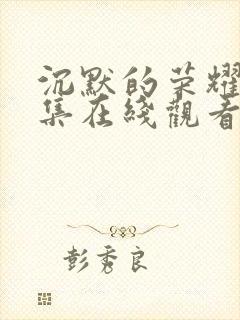 沉默的荣耀
集在綫觀看
彭秀良